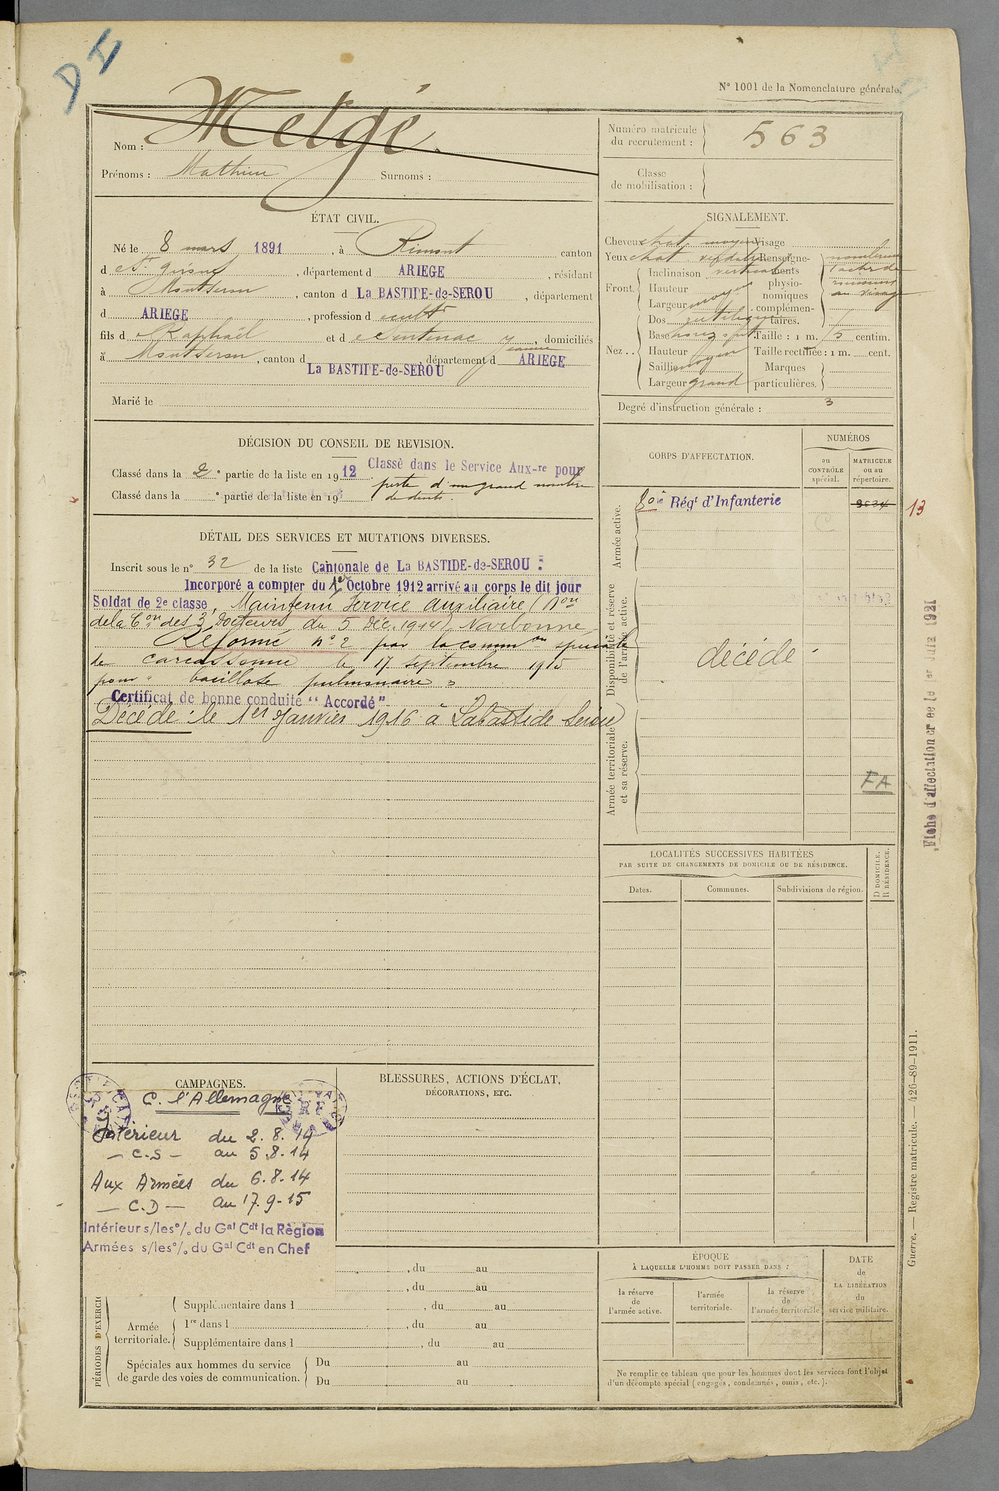 D I
N° 1001 de la Nomenclature générale.
Nom : Metgé
Prénoms : Mathieu Surnoms :
Numéro matricule du recrutement : 563
Classe de mobilisation :
ÉTAT CIVIL.
Né le 8 mars 1891, à Rimont canton
d St Girons, département d ARIEGE, résidant
à Montseron, canton d La BASTIDE-de-SEROU, département
d ARIEGE, profession d cultr
fils d Raphaël et d , domiciliés
à Montseron, canton d La BASTIDE-de-SEROU, département d ARIEGE
Marié le
SIGNALEMENT.
Cheveux chat. moyen Visage
Yeux chat. verdâtre
Front. Inclinaison verticale
Hauteur
Largeur moyen
Nez. Dos rectiligne
Base
Hauteur moyen
Saillie moyen
Largeur grand
Renseignements physionomiques complémentaires. nombreuses taches de rousseur au visage
Taille : 1 m. centim.
Taille rectifiée : 1 m. cent.
Marques particulières.
Degré d'instruction générale : 3
DÉCISION DU CONSEIL DE REVISION.
Classé dans la 2e partie de la liste en 1912 Classé dans le Service Aux-re pour
perte d'un grand nombre
Classé dans la e partie de la liste en 19 de dents.
CORPS D'AFFECTATION.
NUMÉROS
au CONTRÔLE spécial.
MATRICULE ou au répertoire.
Armée active.
80e Régt d'Infanterie
13
Disponibilité et réserve de l'armée active.
décédé
Armée territoriale et sa réserve.
FA
Fiche d'affectation créée le 1er Juin 1921
DÉTAIL DES SERVICES ET MUTATIONS DIVERSES.
Inscrit sous le n° 32 de la liste Cantonale de La BASTIDE-de-SEROU :
Incorporé a compter du 1er Octobre 1912 arrivé au corps le dit jour
Soldat de 2e classe, Maintenu Service Auxiliaire (Don
de la Con des 3 Docteurs du 5 Déc. 1914) Narbonne
Réformé n° 2 par la common spéciale
de Carcassonne le 17 septembre 1915
pour " bacillose pulmonaire "
Certificat de bonne conduite " Accordé "
Décédé le 1er Janvier 1916 à Labastide Serou
LOCALITÉS SUCCESSIVES HABITÉES
PAR SUITE DE CHANGEMENTS DE DOMICILE OU DE RÉSIDENCE.
D DOMICILE. R RÉSIDENCE.
Dates. Communes. Subdivisions de région.
CAMPAGNES.
C. l'Allemagne
Intérieur du 2.8.14
— C.S — au 5.8.14
Aux Armées du 6.8.14
— C.D — au 17.9.15
Intérieur s/les %. du Gal Cdt la Région
Armées s/les %. du Gal Cdt en Chef
BLESSURES, ACTIONS D'ÉCLAT,
DÉCORATIONS, ETC.
, du au
, du au
PÉRIODES D'EXERCICE
Supplémentaire dans l , du au
Armée territoriale. 1re dans l , du au
Supplémentaire dans l , du au
Spéciales aux hommes du service de garde des voies de communication. Du au
Du au
ÉPOQUE
À LAQUELLE L'HOMME DOIT PASSER DANS :
la réserve de l'armée active.
l'armée territoriale.
la réserve de l'armée territoriale.
DATE de LA LIBÉRATION du service militaire.
Ne remplir ce tableau que pour les hommes dont les services font l'objet
d'un décompte spécial (engagés, condamnés, omis, etc.).
Guerre. — Registre matricule. — 426-89-1911.